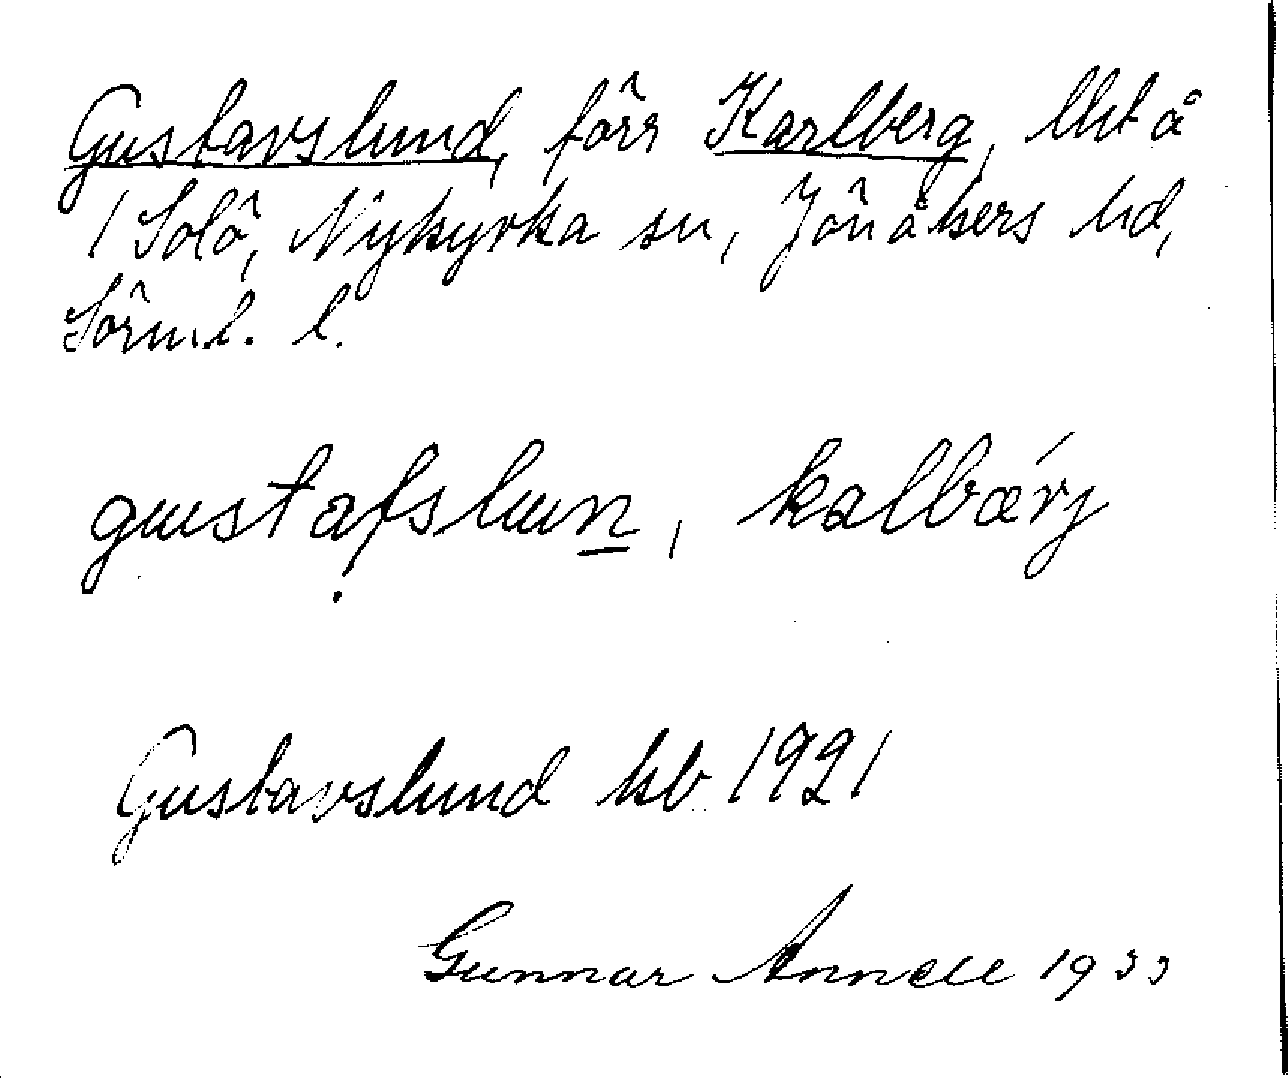 Gustavslund, förr Karlberg, lht å
1 Solö, Nykyrka sn, Jönåkers hd,
Sörml. l.
gustafslun, kalbærj
Gustavslund kb 1921
Gunnar Annell 1933